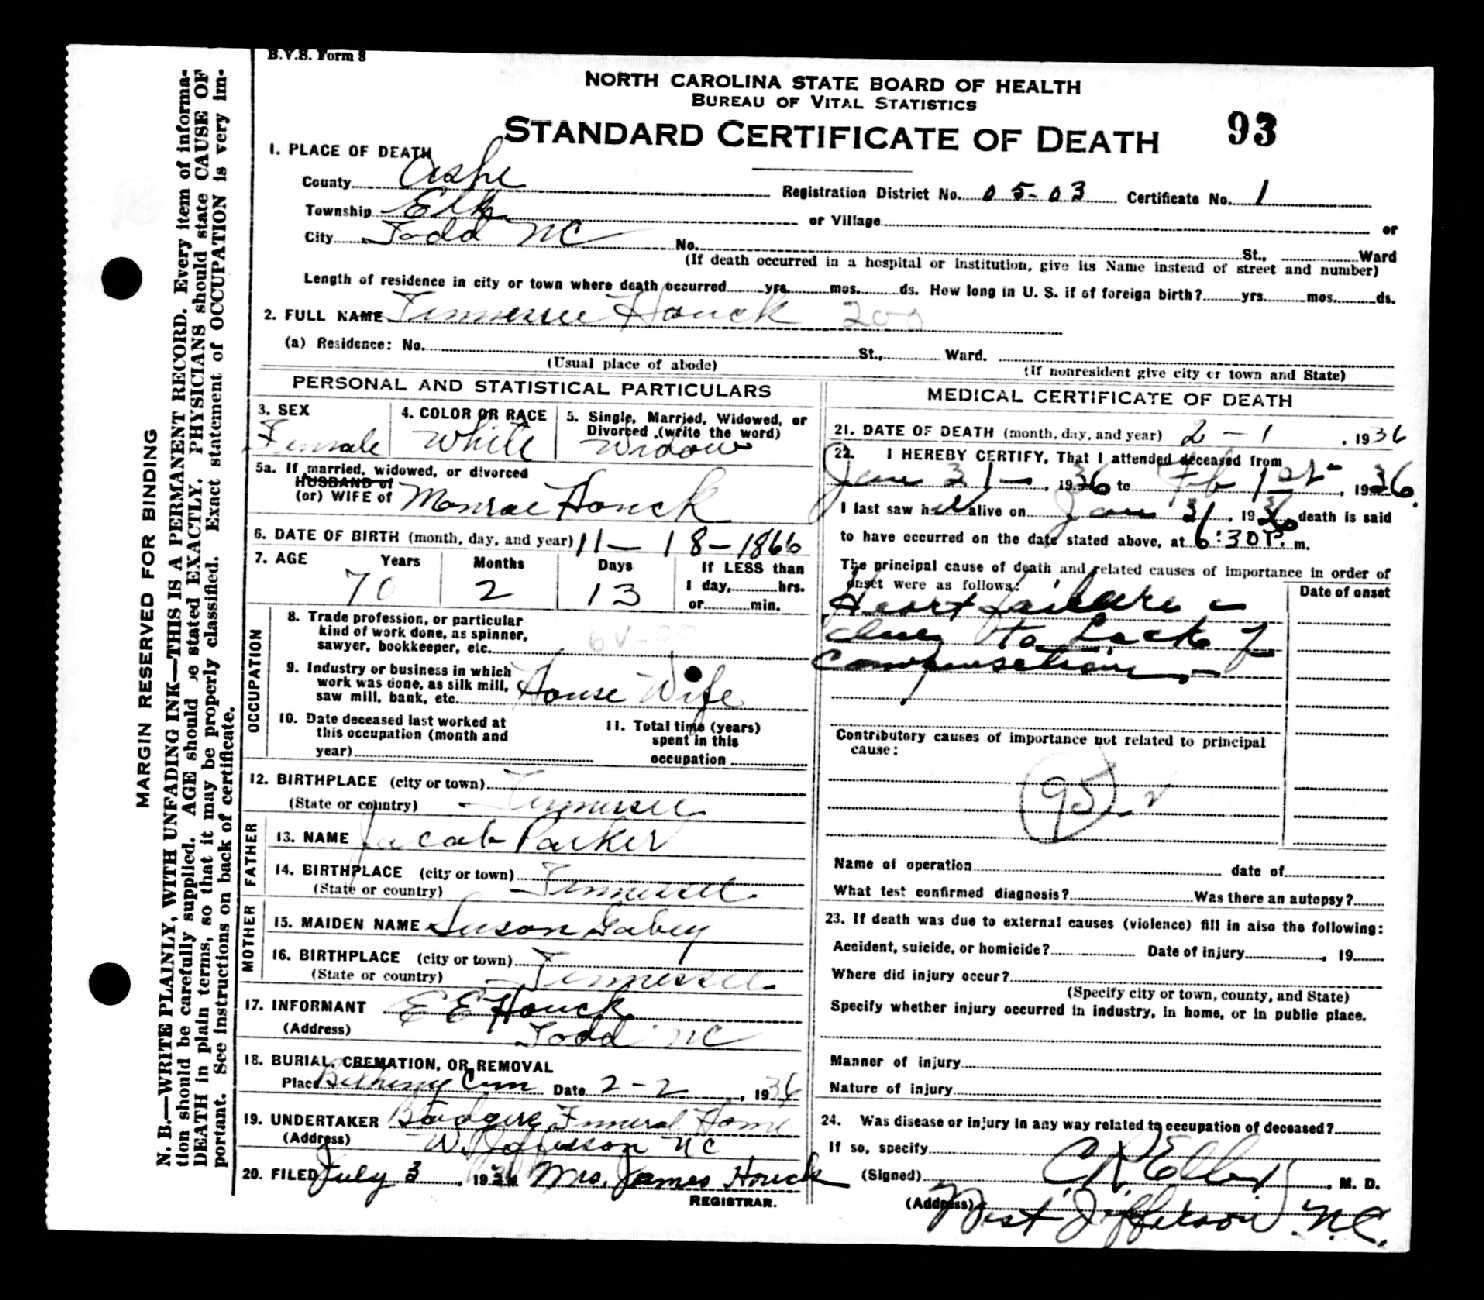 B.V.S. Form 8
NORTH CAROLINA STATE BOARD OF HEALTH
BUREAU OF VITAL STATISTICS
STANDARD CERTIFICATE OF DEATH 93
1. PLACE OF DEATH
County Ashe Registration District No. 05-03 Certificate No. 1
Township Elk or Village or
City Todd NC No. St., Ward
(If death occurred in a hospital or institution, give its Name instead of street and number)
Length of residence in city or town where death occurred yrs. mos. ds. How long in U. S. if of foreign birth? yrs. mos. ds.
2. FULL NAME Tennessee Houck 200
(a) Residence: No. St., Ward.
(Usual place of abode) (If nonresident give city or town and State)
PERSONAL AND STATISTICAL PARTICULARS
3. SEX
Female
4. COLOR OR RACE
White
5. Single, Married, Widowed, or
Divorced (write the word)
Widow
5a. If married, widowed, or divorced
HUSBAND of
(or) WIFE of Monroe Houck
6. DATE OF BIRTH (month, day, and year) 11-18-1866
7. AGE Years Months Days If LESS than
70 2 13 1 day, hrs.
or min.
OCCUPATION
8. Trade profession, or particular
kind of work done, as spinner,
sawyer, bookkeeper, etc.
9. Industry or business in which
work was done, as silk mill,
saw mill, bank, etc. House Wife
10. Date deceased last worked at
this occupation (month and
year)
11. Total time (years)
spent in this
occupation
12. BIRTHPLACE (city or town) Tennessee
(State or country)
FATHER
13. NAME Jacob Parker
14. BIRTHPLACE (city or town) Tennessee
(State or country)
MOTHER
15. MAIDEN NAME Susan Gabey
16. BIRTHPLACE (city or town) Tennessee
(State or country)
17. INFORMANT E E Houck
(Address) Todd NC
18. BURIAL, CREMATION, OR REMOVAL
Place Bethany Cem Date 2-2, 1936
19. UNDERTAKER Badgers Funeral Home
(Address) W. Jefferson NC
20. FILED July 3, 1936 Mrs. James Houck
REGISTRAR.
MEDICAL CERTIFICATE OF DEATH
21. DATE OF DEATH (month, day, and year) 2-1, 1936
22. I HEREBY CERTIFY, That I attended deceased from
Jan 31-, 1936 to Feb 1st, 1936.
I last saw her alive on Jan 31, 1936, death is said
to have occurred on the date stated above, at 6:30 P. m.
The principal cause of death and related causes of importance in order of
onset were as follows: Date of onset
Heart failure -
due to Lack of
Compensation -
Contributory causes of importance not related to principal
cause:
95
Name of operation date of
What test confirmed diagnosis? Was there an autopsy?
23. If death was due to external causes (violence) fill in also the following:
Accident, suicide, or homicide? Date of injury, 19
Where did injury occur?
(Specify city or town, county, and State)
Specify whether injury occurred in industry, in home, or in public place.
Manner of injury
Nature of injury
24. Was disease or injury in any way related to occupation of deceased?
If so, specify
(Signed) M. D.
(Address) West Jefferson N.C.
MARGIN RESERVED FOR BINDING
N. B.—WRITE PLAINLY, WITH UNFADING INK—THIS IS A PERMANENT RECORD. Every item of informa-
tion should be carefully supplied. AGE should be stated EXACTLY. PHYSICIANS should state CAUSE OF
DEATH in plain terms, so that it may be properly classified. Exact statement of OCCUPATION is very im-
portant. See instructions on back of certificate.